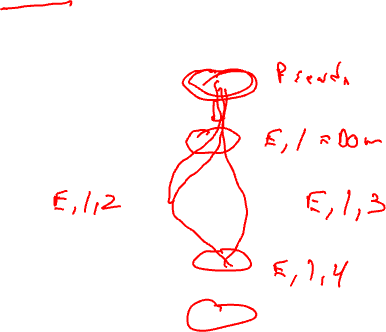 Pseudo
E, 1 = Dom
E, 1, 2
E, 1, 3
E, 1, 4